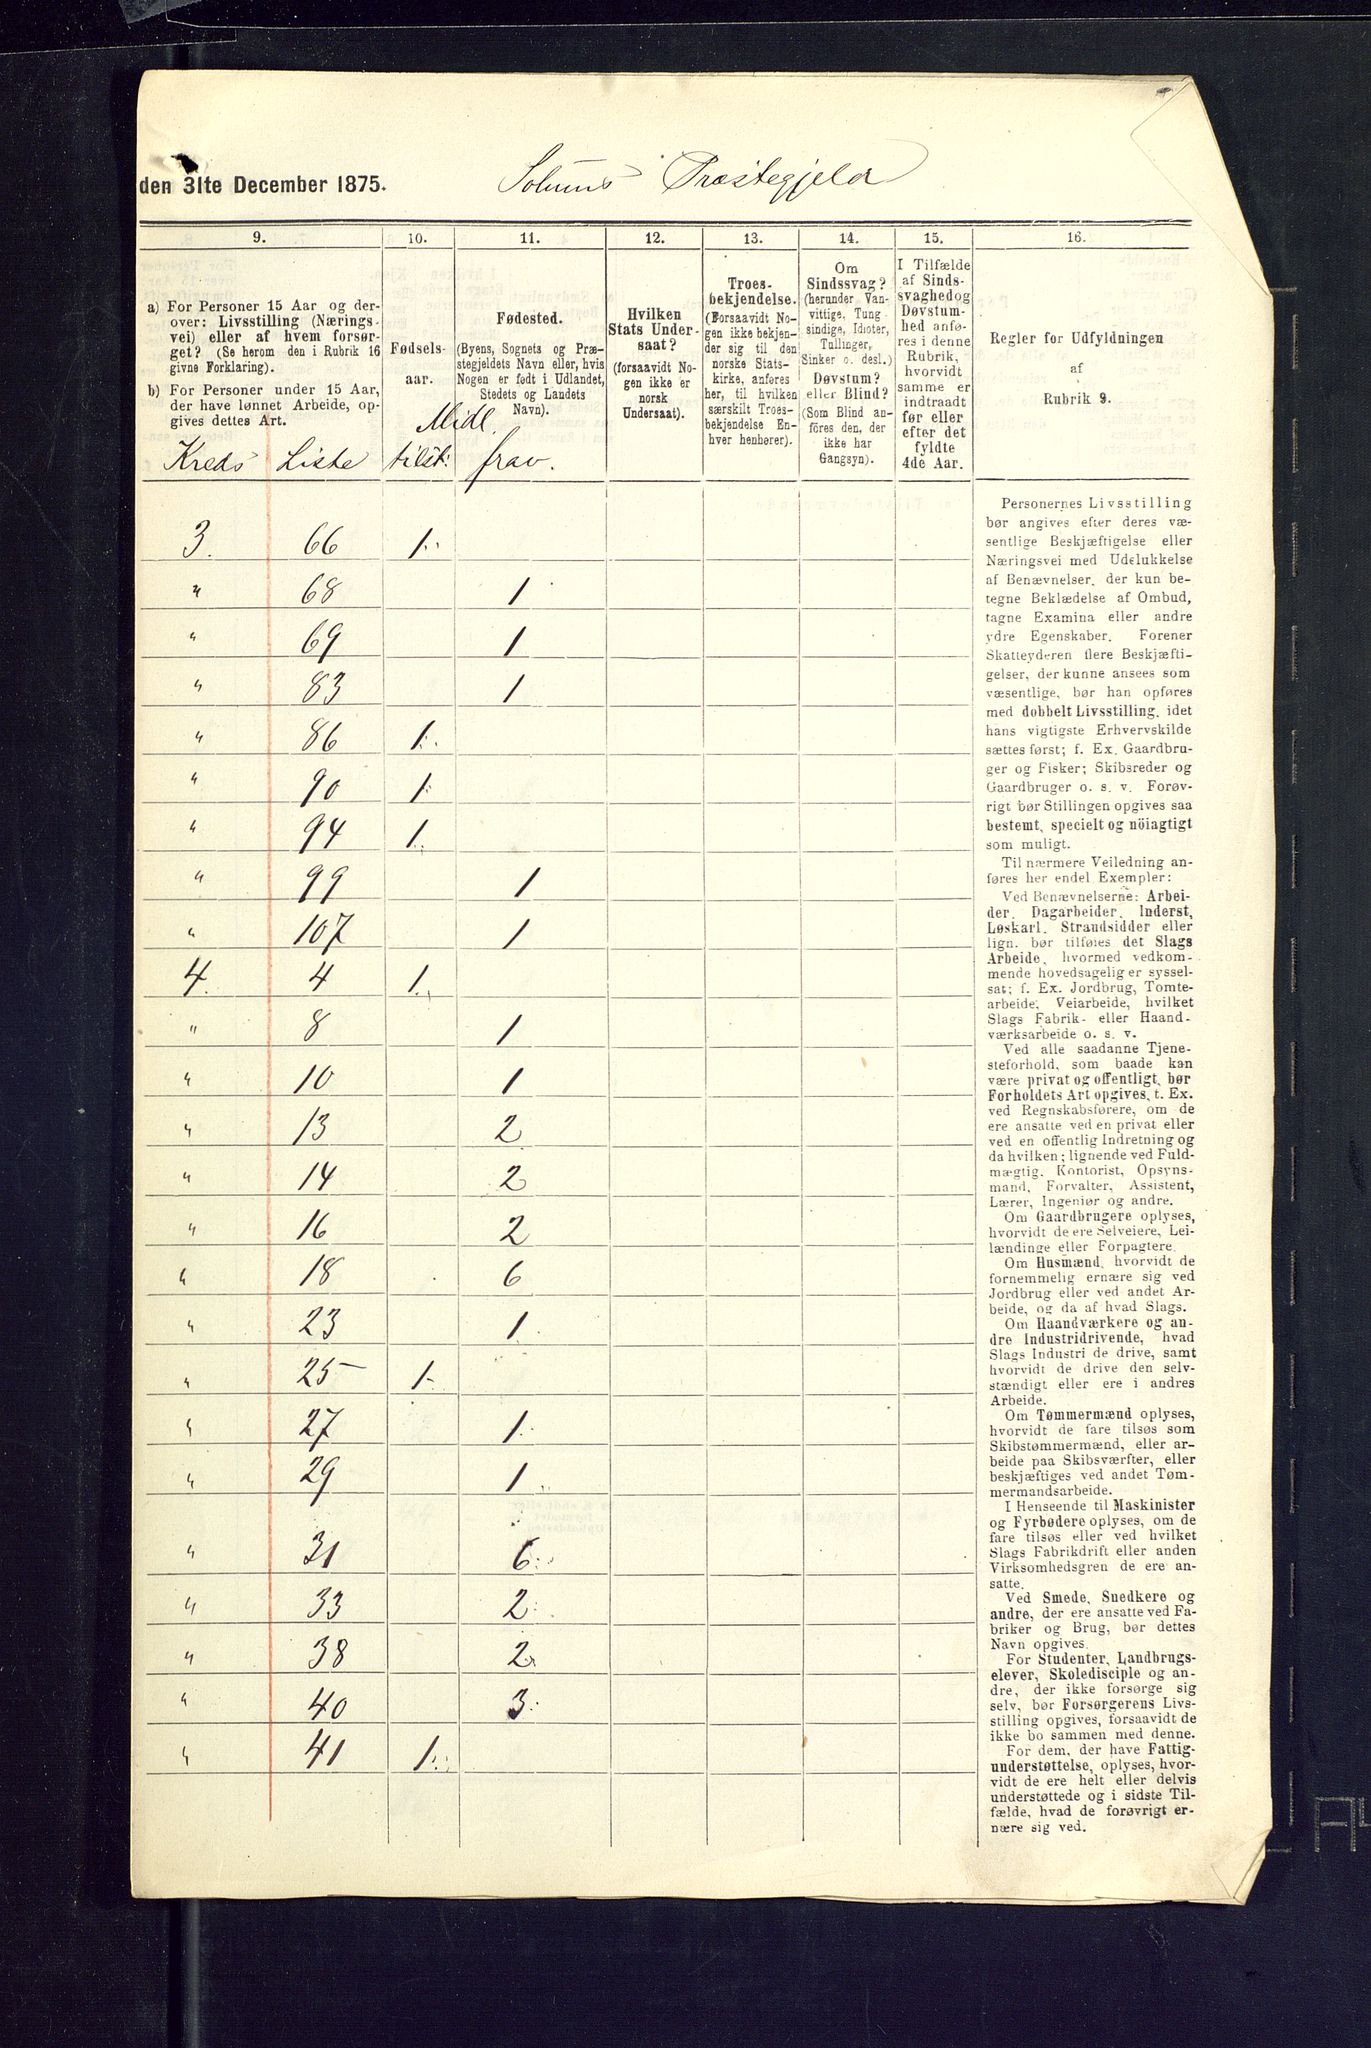 den 31te December 1875. Solums Præstegjeld
9. 10. 11. 12. 13. 14. 15. 16.
a) For Personer 15 Aar og derover: Livsstilling (Næringsvei) eller af hvem forsørget? (Se herom den i Rubrik 16 givne Forklaring).
b) For Personer under 15 Aar, der have lønnet Arbeide, opgives dettes Art.
Fødselsaar.
Fødested.
(Byens, Sognets og Præstegjeldets Navn eller, hvis Nogen er født i Udlandet, Stedets og Landets Navn).
Hvilken Stats Undersaat?
(forsaavidt Nogen ikke er norsk Undersaat).
Troesbekjendelse.
(Forsaavidt Nogen ikke bekjender sig til den norske Statskirke, anføres her, til hvilken særskilt Troesbekjendelse Enhver henhører).
Om Sindssvag? (herunder Vanvittige, Tungsindige, Idioter, Tullinger, Sinker o. desl.) Døvstum? eller Blind? (Som Blind anføres den, der ikke har Gangsyn).
I Tilfælde af Sindssvaghed og Døvstumhed anføres i denne Rubrik, hvorvidt samme er indtraadt før eller efter det fyldte 4de Aar.
Regler for Udfyldningen
af
Rubrik 9.
Midl.
Kreds Liste tilst: frav.
3. 66 1.
" 68 1
" 69 1
" 83 1
" 86 1.
" 90 1
" 94 1.
" 99 1
" 107 1
4. 4 1.
" 8 1
" 10 1
" 13 2
" 14 2
" 16 2
" 18 6
" 23 1.
" 25 1.
" 27 1.
" 29 1.
" 31 6.
" 33 2.
" 38 2.
" 40 3.
" 41 1.
Personernes Livsstilling
bør angives efter deres væ-
sentlige Beskjæftigelse eller
Næringsvei med Udelukkelse
af Benævnelser, der kun be-
tegne Beklædelse af Ombud,
tagne Examina eller andre
ydre Egenskaber. Forener
Skatteyderen flere Beskjæfti-
gelser, der kunne ansees som
væsentlige, bør han opføres
med dobbelt Livsstilling, idet
hans vigtigste Erhvervskilde
sættes først; f. Ex. Gaardbru-
ger og Fisker; Skibsreder og
Gaardbruger o. s. v. Forøv-
rigt bør Stillingen opgives saa
bestemt, specielt og nöiagtigt
som muligt.
Til nærmere Veiledning an-
føres her endel Exempler:
Ved Benævnelserne: Arbei-
der, Dagarbeider, Inderst,
Løskarl, Strandsidder eller
lign. bør tilføies det Slags
Arbeide, hvormed vedkom-
mende hovedsagelig er syssel-
sat; f. Ex. Jordbrug, Tomte-
arbeide, Veiarbeide, hvilket
Slags Fabrik- eller Haand-
værksarbeide o. s. v.
Ved alle saadanne Tjene-
steforhold, som baade kan
være privat og offentligt, bør
Forholdets Art opgives, t. Ex.
ved Regnskabsførere, om de
ere ansatte ved en privat eller
ved en offentlig Indretning og
da hvilken; lignende ved Fuld-
mægtig, Kontorist, Opsyns-
mand, Forvalter, Assistent,
Lærer, Ingeniør og andre.
Om Gaardbrugere oplyses,
hvorvidt de ere Selveiere, Lei-
lændinge eller Forpagtere.
Om Husmænd, hvorvidt de
fornemmelig ernære sig ved
Jordbrug eller ved andet Ar-
beide, og da af hvad Slags.
Om Haandværkere og an-
dre Industridrivende, hvad
Slags Industri de drive, samt
hvorvidt de drive den selv-
stændigt eller ere i andres
Arbeide.
Om Tømmermænd oplyses,
hvorvidt de fare tilsøs som
Skibstømmermænd, eller ar-
beide paa Skibsværfter, eller
beskjæftiges ved andet Tøm-
mermandsarbeide.
I Henseende til Maskinister
og Fyrbødere oplyses, om de
fare tilsøs eller ved hvilket
Slags Fabrikdrift eller anden
Virksomhedsgren de ere an-
satte.
Ved Smede, Snedkere og
andre, der ere ansatte ved Fa-
briker og Brug, bør dettes
Navn opgives.
For Studenter, Landbrugs-
elever, Skoledisciple og an-
dre, der ikke forsørge sig
selv, bør Forsørgerens Livs-
stilling opgives, forsaavidt de
ikke bo sammen med denne.
For dem, der have Fattig-
understøttelse, oplyses, hvor-
vidt de ere helt eller delvis
understøttede og i sidste Til-
fælde, hvad de forøvrigt er-
nære sig ved.